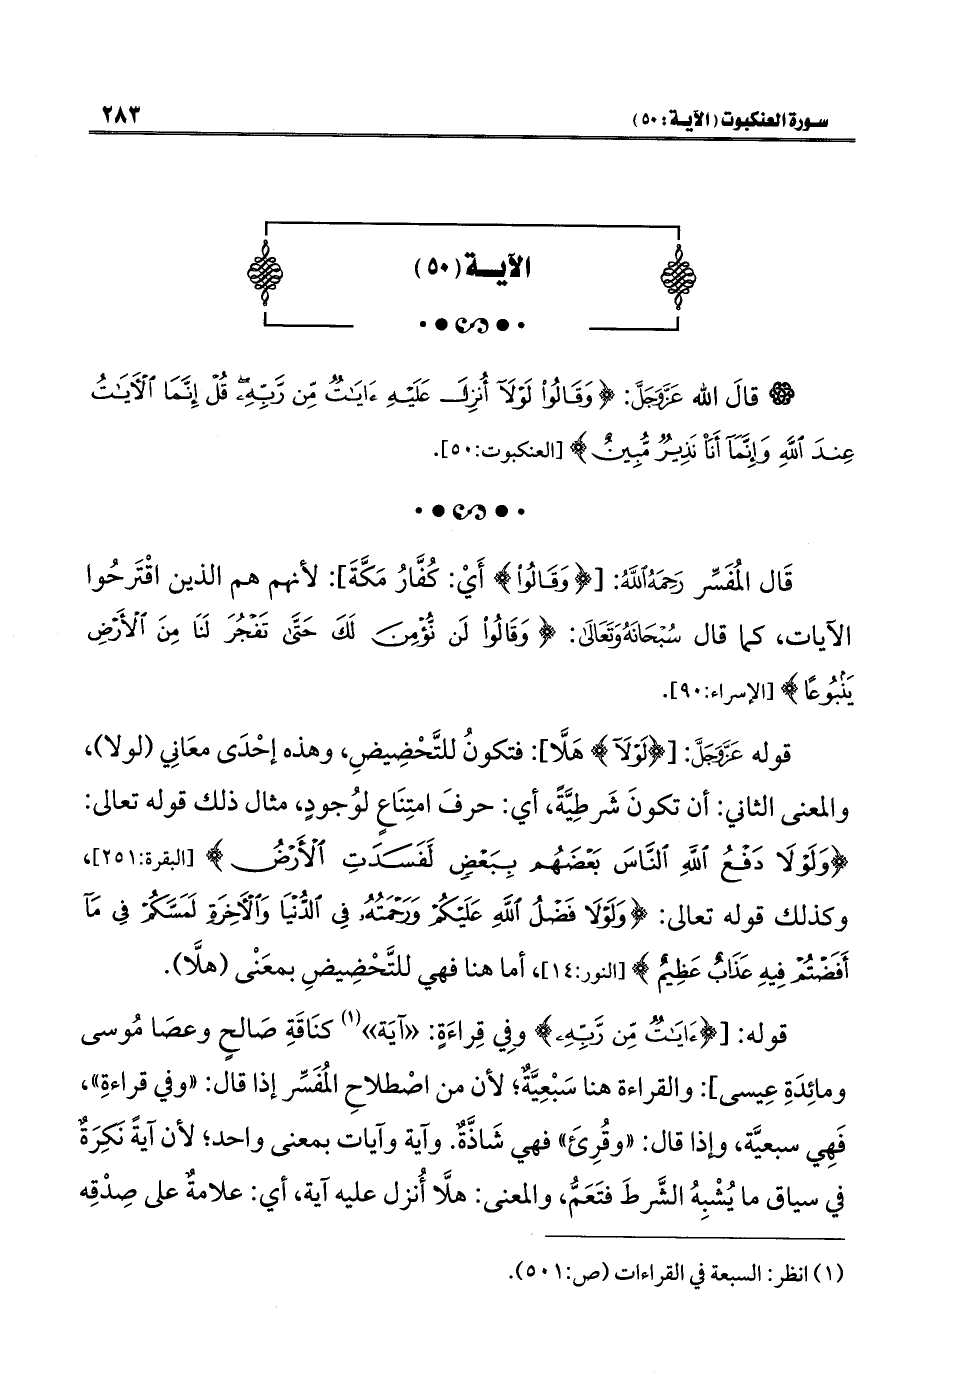 سورة العنكبوت (الآية: ٥٠)
٢٨٣
الآيـــة (٥٠)
قالَ الله عَزَّوَجَلَّ: ﴿وَقَالُوا۟ لَوْلَآ أُنزِلَ عَلَيْهِ ءَايَٰتٌ مِّن رَّبِّهِۦ ۖ قُلْ إِنَّمَا ٱلْآيَٰتُ
عِندَ ٱللَّهِ وَإِنَّمَآ أَنَا۠ نَذِيرٌ مُّبِينٌ﴾ [العنكبوت:٥٠].
قَال المُفَسِّر رَحِمَهُ ٱللَّهُ: [﴿وَقَالُوا۟﴾ أَيْ: كُفَّارُ مَكَّةَ]: لأنهم هم الذين اقْتَرحُوا
الآيات، كما قال سُبْحَانَهُ وَتَعَالَىٰ: ﴿وَقَالُوا۟ لَن نُّؤْمِنَ لَكَ حَتَّىٰ تَفْجُرَ لَنَا مِنَ ٱلْأَرْضِ
يَنۢبُوعًا﴾ [الإسراء:٩٠].
قوله عَزَّوَجَلَّ: [﴿لَوْلَآ﴾ هَلَّا]: فتكونُ للتَّحْضِيضِ، وهذه إحْدَى معَانِي (لولا)،
والمعنى الثاني: أن تكونَ شَرطِيَّةً، أي: حرفَ امتِنَاعٍ لوُجودٍ، مثال ذلك قوله تعالى:
﴿وَلَوْلَا دَفْعُ ٱللَّهِ ٱلنَّاسَ بَعْضَهُم بِبَعْضٍ لَفَسَدَتِ ٱلْأَرْضُ﴾ [البقرة:٢٥١]،
وكذلك قوله تعالى: ﴿وَلَوْلَا فَضْلُ ٱللَّهِ عَلَيْكُمْ وَرَحْمَتُهُۥ فِي ٱلدُّنْيَا وَٱلْآخِرَةِ لَمَسَّكُمْ فِي مَآ
أَفَضْتُمْ فِيهِ عَذَابٌ عَظِيمٌ﴾ [النور:١٤]، أما هنا فهي للتَّحْضِيضِ بمعَنْى (هلَّا).
قوله: [﴿ءَايَٰتٌ مِّن رَّبِّهِۦ﴾ وفي قِراءَةٍ: «آيَة»(١) كنَاقَةِ صَالحٍ وعصَا مُوسى
ومائِدَةِ عِيسى]: والقراءة هنا سَبْعِيَّةٌ؛ لأن من اصْطلاحِ المُفَسِّر إذا قال: «وفي قراءةٍ»،
فَهِي سبعيَّة، وإذا قال: «وقُرِئَ» فهي شَاذَّةٌ. وآية وآيات بمعنى واحد؛ لأن آيةً نَكِرَةٌ
في سياق ما يُشْبِهُ الشَّرطَ فتَعَمُّ، والمعنى: هلَّا أُنزل عليه آية، أي: علامةٌ على صِدْقِه
(١) انظر: السبعة في القراءات (ص:٥٠١).